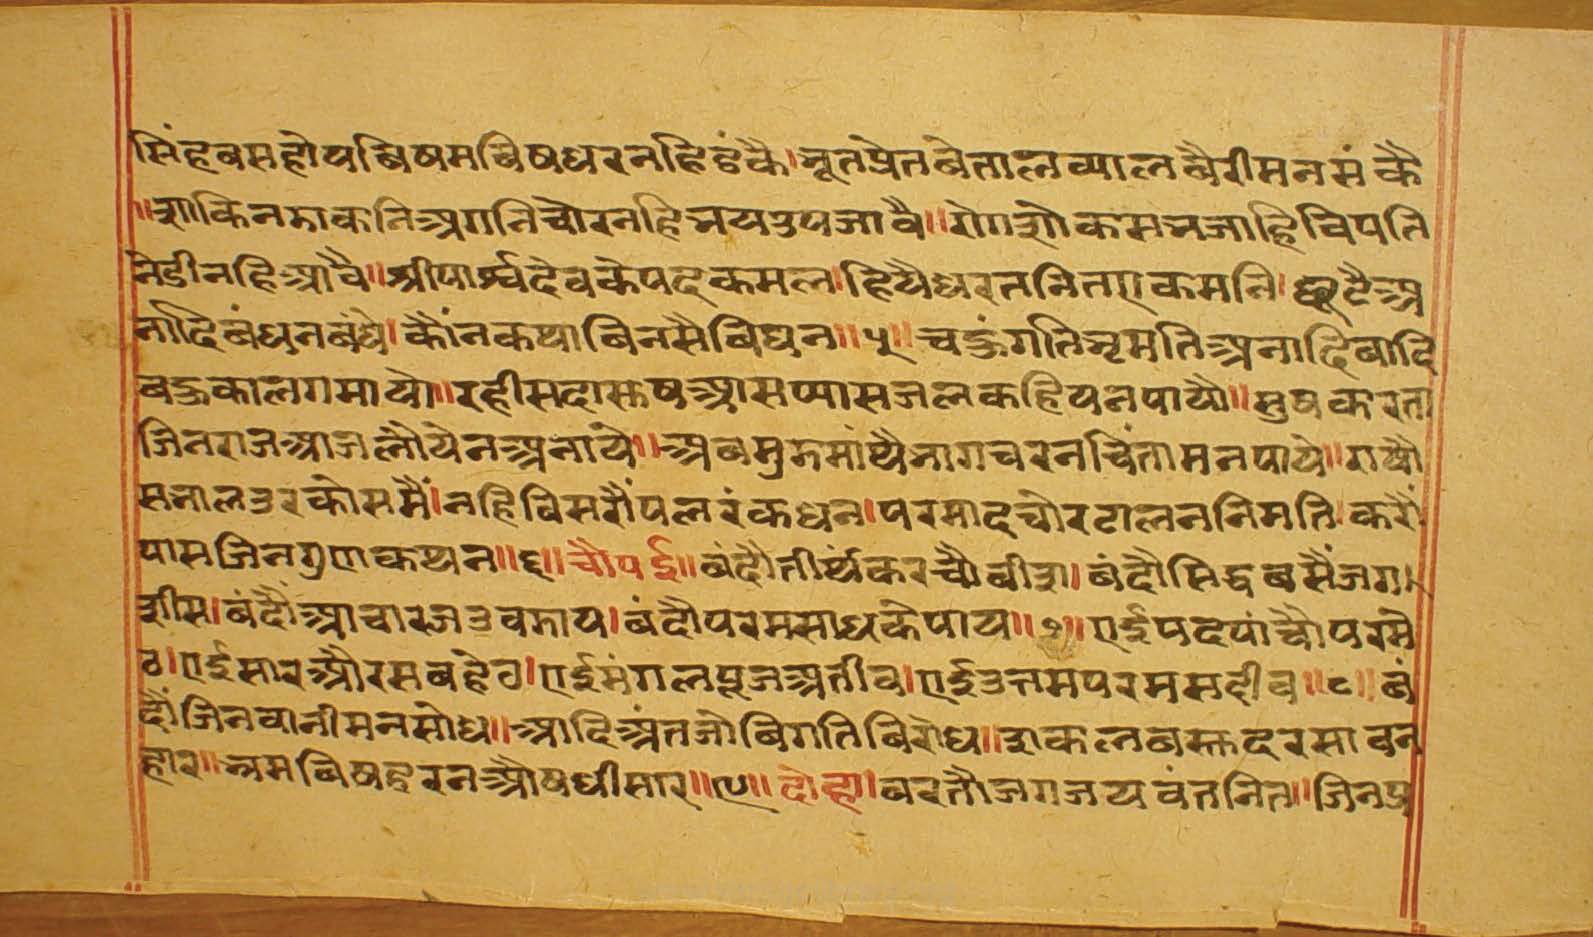 सिंह बस होय बिषम बिषधर नहि डंकै। भूत प्रेत बेताल व्याल बैरी मन संकै
॥शाकिन डाकनि अगनि चोर नहि भय उपजावै॥ रोग शोक सभ जाहि विपति
नेडी नहि आवै॥ श्री पार्श्वदेव के पद कमल। हियै धरत नित एक मनि। छूटै अ
नादि बंधन बंधे। कौंन कथा बिनसै बिघन॥५॥ चहूंगति भृमति अनादि बादि
बहु काल गमायो॥ रही सदा सुष आस प्यास जल कहि य न पायो॥ सुष करता
जिनराज आज लौ ये न अनाये॥ अब मुझ मांथै भाग चरन चिंतामन पाये॥ राषौं
सभाल उर कोस मैं। नहि विसरौं पल रंक धन। परमाद चोर टालन निमति। करौं
पास जिन गुण कथन॥६॥ चौपई॥ बंदौ तीर्थंकर चौवीश। बंदौ सिद्ध बसैं जग
शीस। बंदौं आचारज उवझाय। बंदौ परम साध के पाय॥७॥ एई पद पांचौ परमे
ठ। एई सार और सब हेठ। एई मंगल पूज अतीव। एई उत्तम परम सदीव॥८॥ बं
दौं जिनवानी मन सोध॥ आदि अंत जो बिगति बिरोध॥ शकल बस्त दरसावन
हार॥ भ्रम बिष हरन औषधी सार॥९॥ दोहा। बरतौ जग जयवंत नित॥ जिन प्र